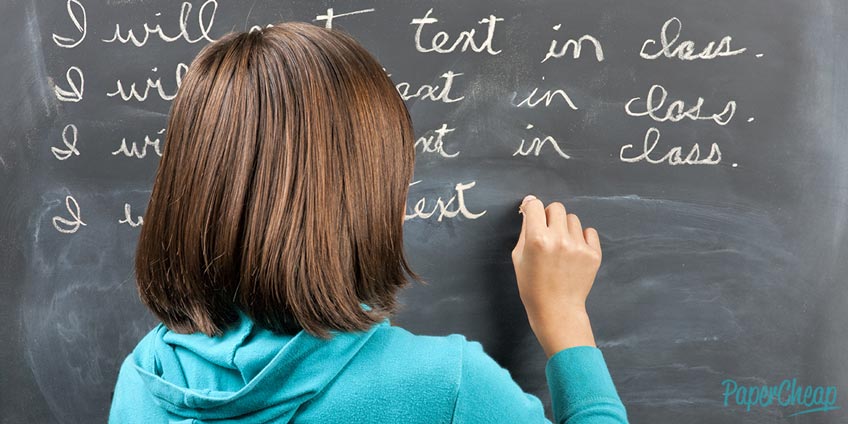 I will not text in class.
I will text in class.
I will text in class.
I text
PaperCheap